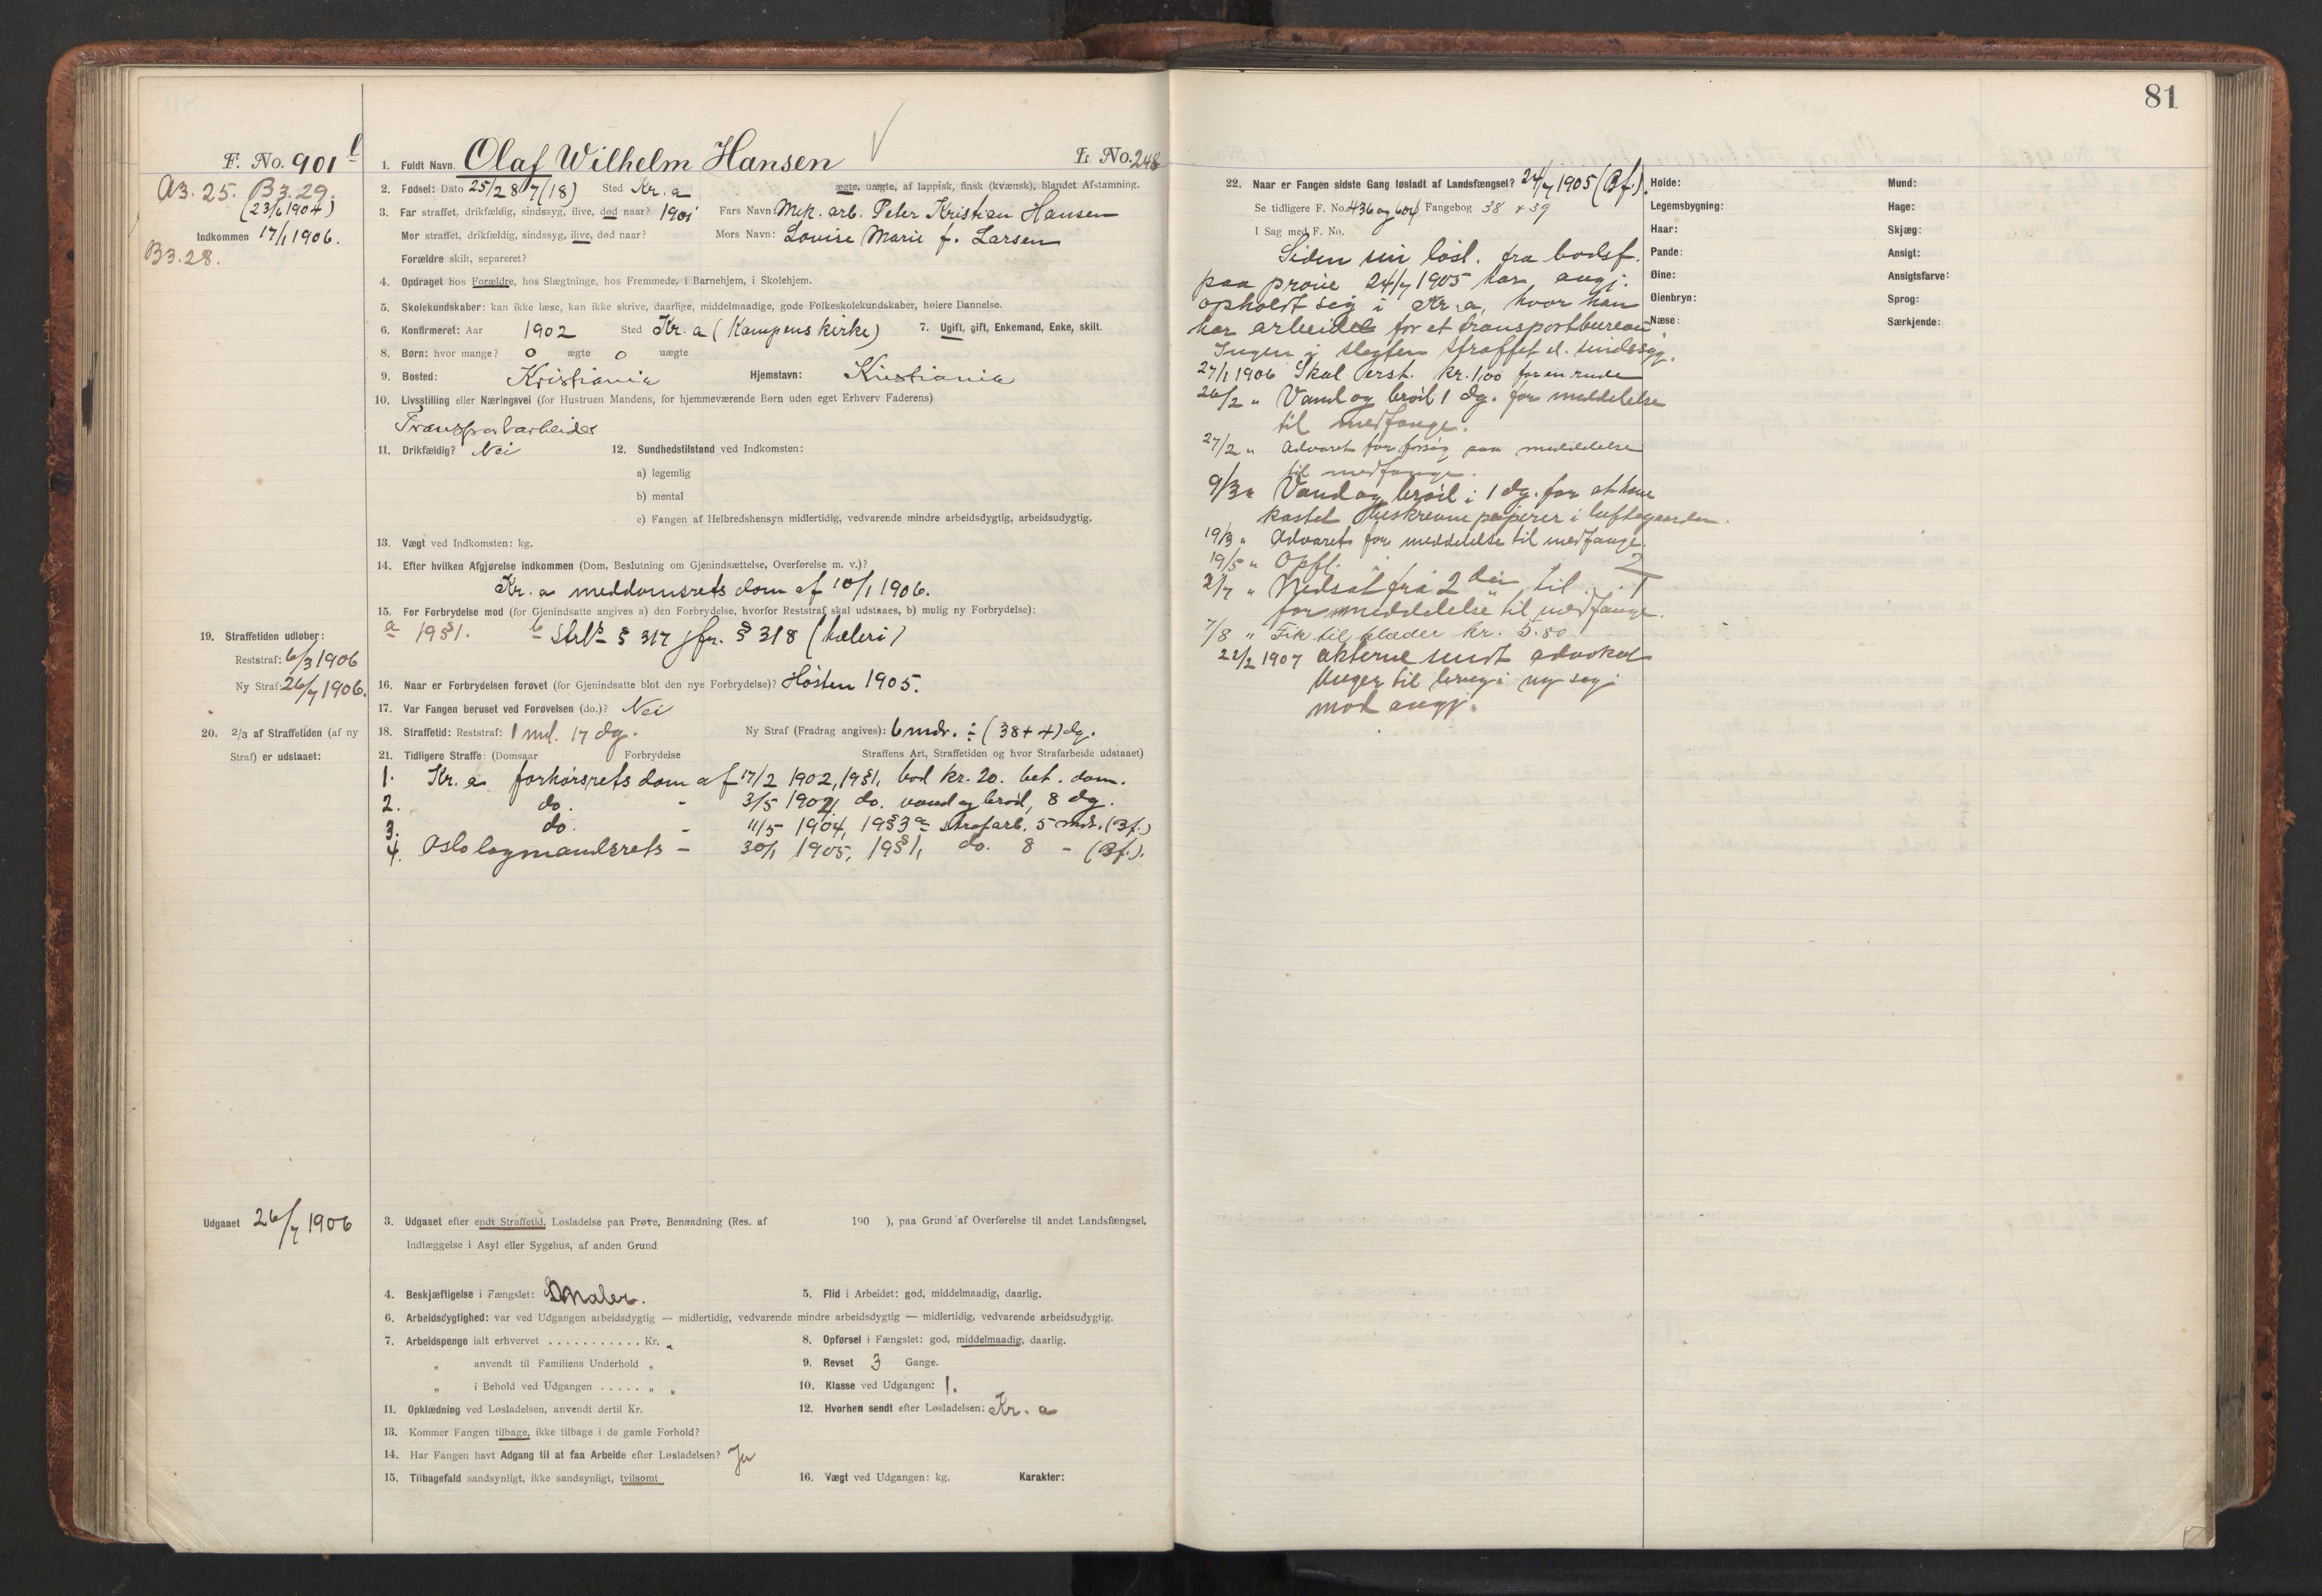 81
F. No. 901 b
1. Fuldt Navn. Olaf Wilhelm Hansen
L. No. 248
A3. 25. B3. 29.
(23/6 1904)
Indkommen 17/1 1906.
B3. 28.
2. Fødsel: Dato 25/2 87 (18) Sted Kr.a ægte, uægte, af lappisk, finsk (kvænsk), blandet Afstamning.
3. Far straffet, drikfældig, sindssyg, ilive, død naar? 1901 Fars Navn: Mek. arb. Peter Kristian Hansen
Mor straffet, drikfældig, sindssyg, ilive, død naar? Mors Navn: Lovise Marie f. Larsen
Forældre skilt, separeret?
4. Opdraget hos Forældre, hos Slægtninge, hos Fremmede, i Barnehjem, i Skolehjem.
5. Skolekundskaber: kan ikke læse, kan ikke skrive, daarlige, middelmaadige, gode Folkeskolekundskaber, høiere Dannelse.
6. Konfirmeret: Aar 1902 Sted Kr.a (Kampens kirke) 7. Ugift, gift, Enkemand, Enke, skilt.
8. Børn: hvor mange? 0 ægte 0 uægte
9. Bosted: Kristiania Hjemstavn: Kristiania
10. Livsstilling eller Næringsvei (for Hustruen Mandens, for hjemmeværende Børn uden eget Erhverv Faderens)
Transportarbeider
11. Drikfældig? Nei 12. Sundhedstilstand ved Indkomsten:
a) legemlig
b) mental
c) Fangen af Helbredshensyn midlertidig, vedvarende mindre arbeidsdygtig, arbeidsudygtig.
13. Vægt ved Indkomsten: kg.
14. Efter hvilken Afgjørelse indkommen (Dom, Beslutning om Gjenindsættelse, Overførelse m. v.)?
Kr.a meddomsrets dom af 10/1 1906.
15. For Forbrydelse mod (for Gjenindsatte angives a) den Forbrydelse, hvorfor Reststraf skal udstaaes, b) mulig ny Forbrydelse):
a 19 § 1. b Strl § 317 jfr. § 318 (hæleri)
19. Straffetiden udløber:
Reststraf: 6/3 1906
Ny Straf: 26/7 1906.
16. Naar er Forbrydelsen forøvet (for Gjenindsatte blot den nye Forbrydelse)? Høsten 1905.
17. Var Fangen beruset ved Forøvelsen (do.)? Nei
20. 2/3 af Straffetiden (af ny
Straf) er udstaaet:
18. Straffetid: Reststraf: 1 md. 17 dg. Ny Straf (Fradrag angives): 6 mdr. ÷ (38 + 4) dg.
21. Tidligere Straffe: (Domsaar Forbrydelse Straffens Art, Straffetiden og hvor Strafarbeide udstaaet)
1. Kr.a forhørsrets dom af 17/2 1902, 19 § 1, bod kr. 20. bet. dom.
2. do. - 3/5 1902, do. vand og brød, 8 dg.
3. do. - 11/5 1904, 19 § 3 a strafarb. 5 mdr. (Bf.)
4. Oslo lagmandsrets - 30/1 1905, 19 § 1, do. 8 - (Bf.).
Udgaaet 26/7 1906
3. Udgaaet efter endt Straffetid, Løsladelse paa Prøve, Benaadning (Res. af 190 ), paa Grund af Overførelse til andet Landsfængsel,
Indlæggelse i Asyl eller Sygehus, af anden Grund
4. Beskjæftigelse i Fængslet: Maler. 5. Flid i Arbeidet: god, middelmaadig, daarlig.
6. Arbeidsdygtighed: var ved Udgangen arbeidsdygtig — midlertidig, vedvarende mindre arbeidsdygtig — midlertidig, vedvarende arbeidsudygtig.
7. Arbeidspenge ialt erhvervet . . . . . . . . . . . Kr. „ 8. Opførsel i Fængslet: god, middelmaadig, daarlig.
„ anvendt til Familiens Underhold „ 9. Revset 3 Gange.
„ i Behold ved Udgangen . . . . . „ „ 10. Klasse ved Udgangen: 1.
11. Opklædning ved Løsladelsen, anvendt dertil Kr. 12. Hvorhen sendt efter Løsladelsen: Kr.a
13. Kommer Fangen tilbage, ikke tilbage i de gamle Forhold?
14. Har Fangen havt Adgang til at faa Arbeide efter Løsladelsen? Ja
15. Tilbagefald sandsynligt, ikke sandsynligt, tvilsomt 16. Vægt ved Udgangen: kg. Karakter:
22. Naar er Fangen sidste Gang løsladt af Landsfængsel? 24/7 1905 (Bf.).
Se tidligere F. No. 436 og 604 Fangebog 38 + 39
I Sag med F. No.
Siden sin løsl. fra bodsf.
paa prøve 24/7 1905 har angj.
opholdt sig i Kr.a, hvor han
har arbeidet for et transportbureau.
Ingen i slegten straffet el. sindssyg.
27/1 1906 Skal erst. kr. 1,00 for en rude
26/2 „ Vand og brød 1 dg. for meddelelse
til medfange.
27/2 „ Advaret for forsøg paa meddelelse
til medfange.
9/3 „ Vand og brød i 1 dg. for at have
kastet papirer i luftegaarden.
19/3 „ Advaret for meddelelse til medfange.
19/5 „ Opfl. 2
2/7 „ Nedsat fra 2den til . . 1
for meddelelse til medfange.
7/8 „ Fik til klæder kr. 5.80
22/2 1907 akterne sendt advokat
til brug i ny sag
mod angj.
Høide:
Legemsbygning:
Haar:
Pande:
Øine:
Øienbryn:
Næse:
Mund:
Hage:
Skjæg:
Ansigt:
Ansigtsfarve:
Sprog:
Særkjende: